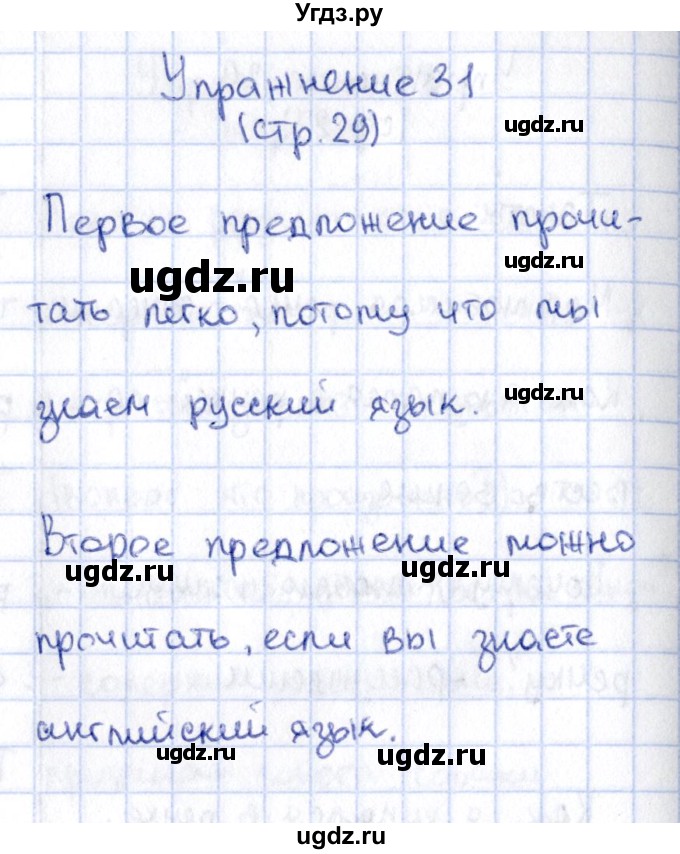 Угдз.ру
Упражнение 31
ugdz.ru
(стр. 29)
ugdz.ru
Первое предложение прочи-
ugdz.ru
ugdz.ru
тать легко, потому что мы
ugdz.ru
знаем русский язык.
Второе предложение можно
ugdz.ru
ugdz.ru
прочитать, если вы знаете
английский язык.
ugdz.ru
ugdz.ru
ugdz.ru